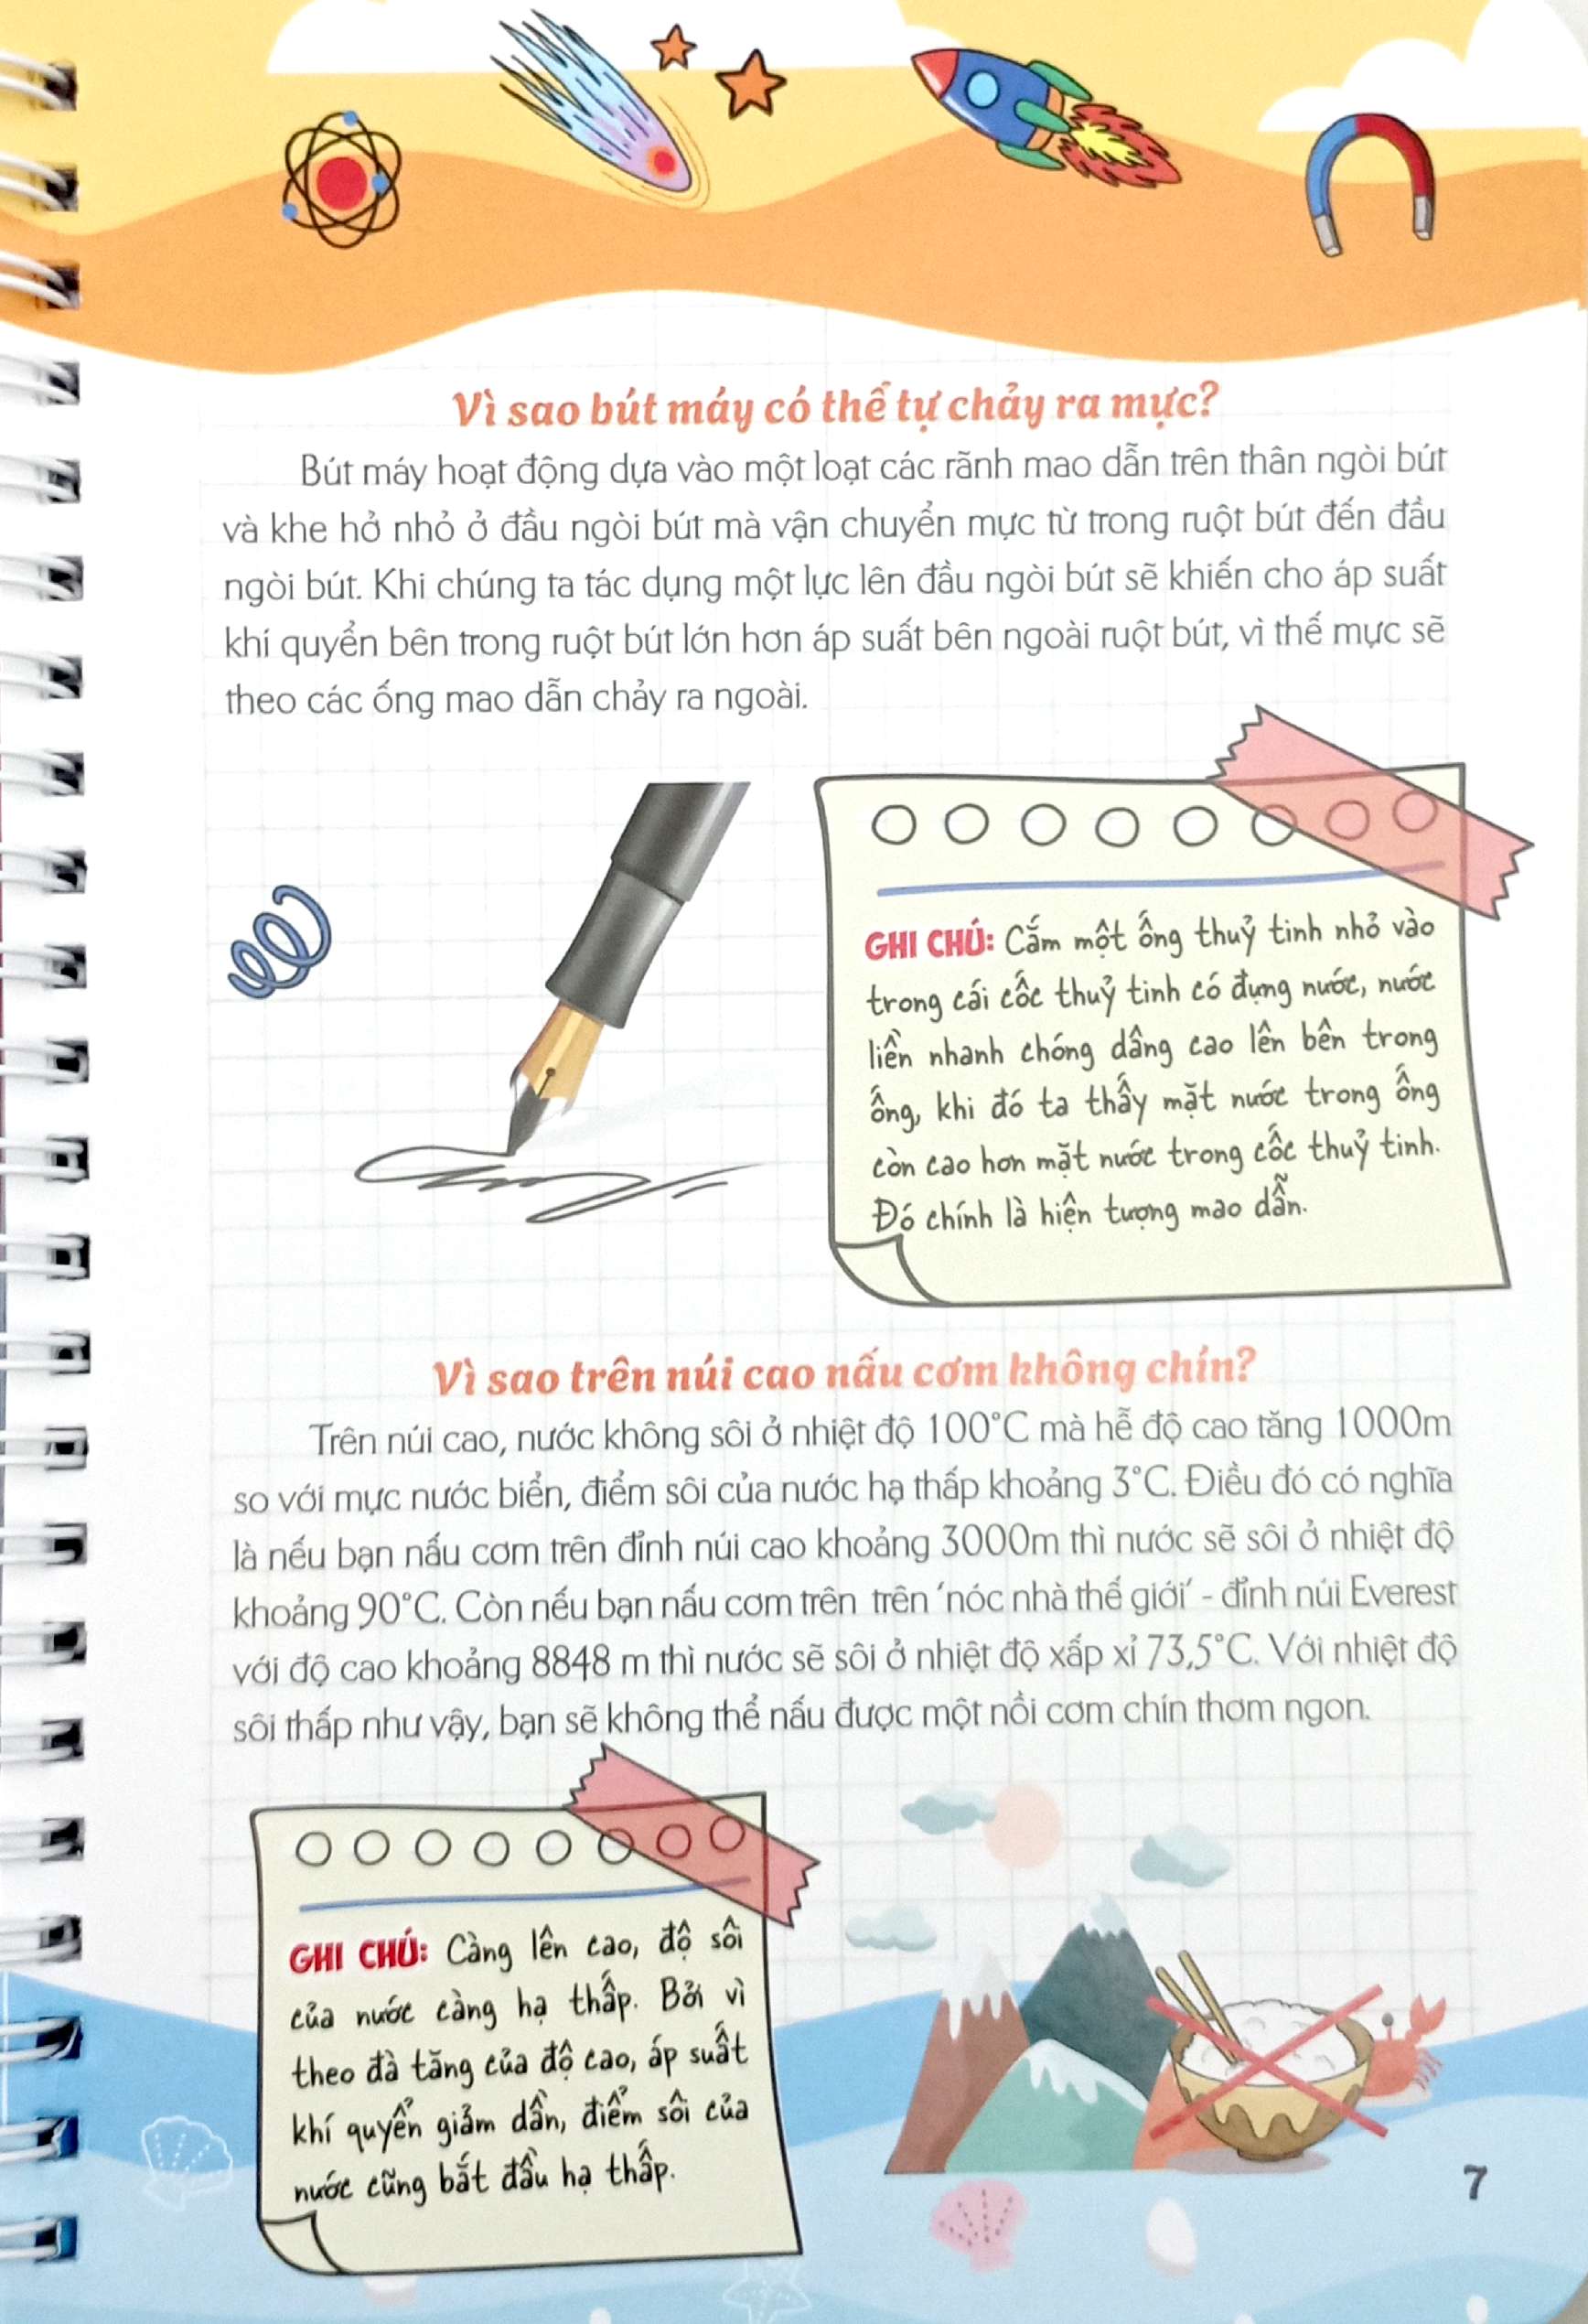 Vì sao bút máy có thể tự chảy ra mực?
Bút máy hoạt động dựa vào một loạt các rãnh mao dẫn trên thân ngòi bút
và khe hở nhỏ ở đầu ngòi bút mà vận chuyển mực từ trong ruột bút đến đầu
ngòi bút. Khi chúng ta tác dụng một lực lên đầu ngòi bút sẽ khiến cho áp suất
khí quyển bên trong ruột bút lớn hơn áp suất bên ngoài ruột bút, vì thế mực sẽ
theo các ống mao dẫn chảy ra ngoài.
GHI CHÚ: Cắm một ống thuỷ tinh nhỏ vào
trong cái cốc thuỷ tinh có đựng nước, nước
liền nhanh chóng dâng cao lên bên trong
ống, khi đó ta thấy mặt nước trong ống
còn cao hơn mặt nước trong cốc thuỷ tinh.
Đó chính là hiện tượng mao dẫn.
Vì sao trên núi cao nấu cơm không chín?
Trên núi cao, nước không sôi ở nhiệt độ 100°C mà hễ độ cao tăng 1000m
so với mực nước biển, điểm sôi của nước hạ thấp khoảng 3°C. Điều đó có nghĩa
là nếu bạn nấu cơm trên đỉnh núi cao khoảng 3000m thì nước sẽ sôi ở nhiệt độ
khoảng 90°C. Còn nếu bạn nấu cơm trên trên ‘nóc nhà thế giới’ - đỉnh núi Everest
với độ cao khoảng 8848 m thì nước sẽ sôi ở nhiệt độ xấp xỉ 73,5°C. Với nhiệt độ
sôi thấp như vậy, bạn sẽ không thể nấu được một nồi cơm chín thơm ngon.
GHI CHÚ: Càng lên cao, độ sôi
của nước càng hạ thấp. Bởi vì
theo đà tăng của độ cao, áp suất
khí quyển giảm dần, điểm sôi của
nước cũng bắt đầu hạ thấp.
7